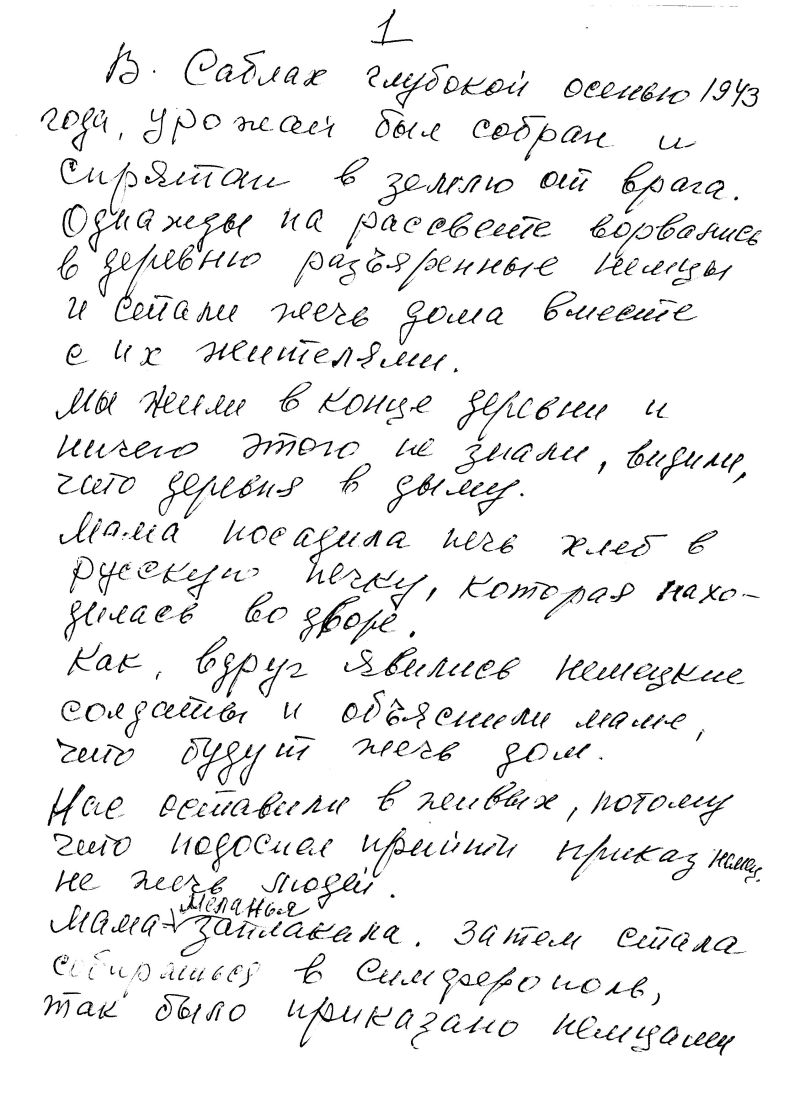 1
В. Саблах глубокой осенью 1943
года, урожай был собран и
спрятан в землю от врага.
Однажды на рассвете ворвались
в деревню разъяренные немцы
и стали жечь дома вместе
с их жителями.
Мы жили в конце деревни и
ничего этого не знали, видили,
что деревня в дыму.
Мама посадила печь хлеб в
русскую печку, которая нахо-
дилась во дворе.
Как, вдруг явились немецкие
солдаты и объяснили маме,
что будут жечь дом.
Нас оставили в живых, потому
что подоспел прийти приказ немц.
не жечь людей.
Меланья
Мама - заплакала. Затем стала
собираться в Симферополь,
так было приказано немцами